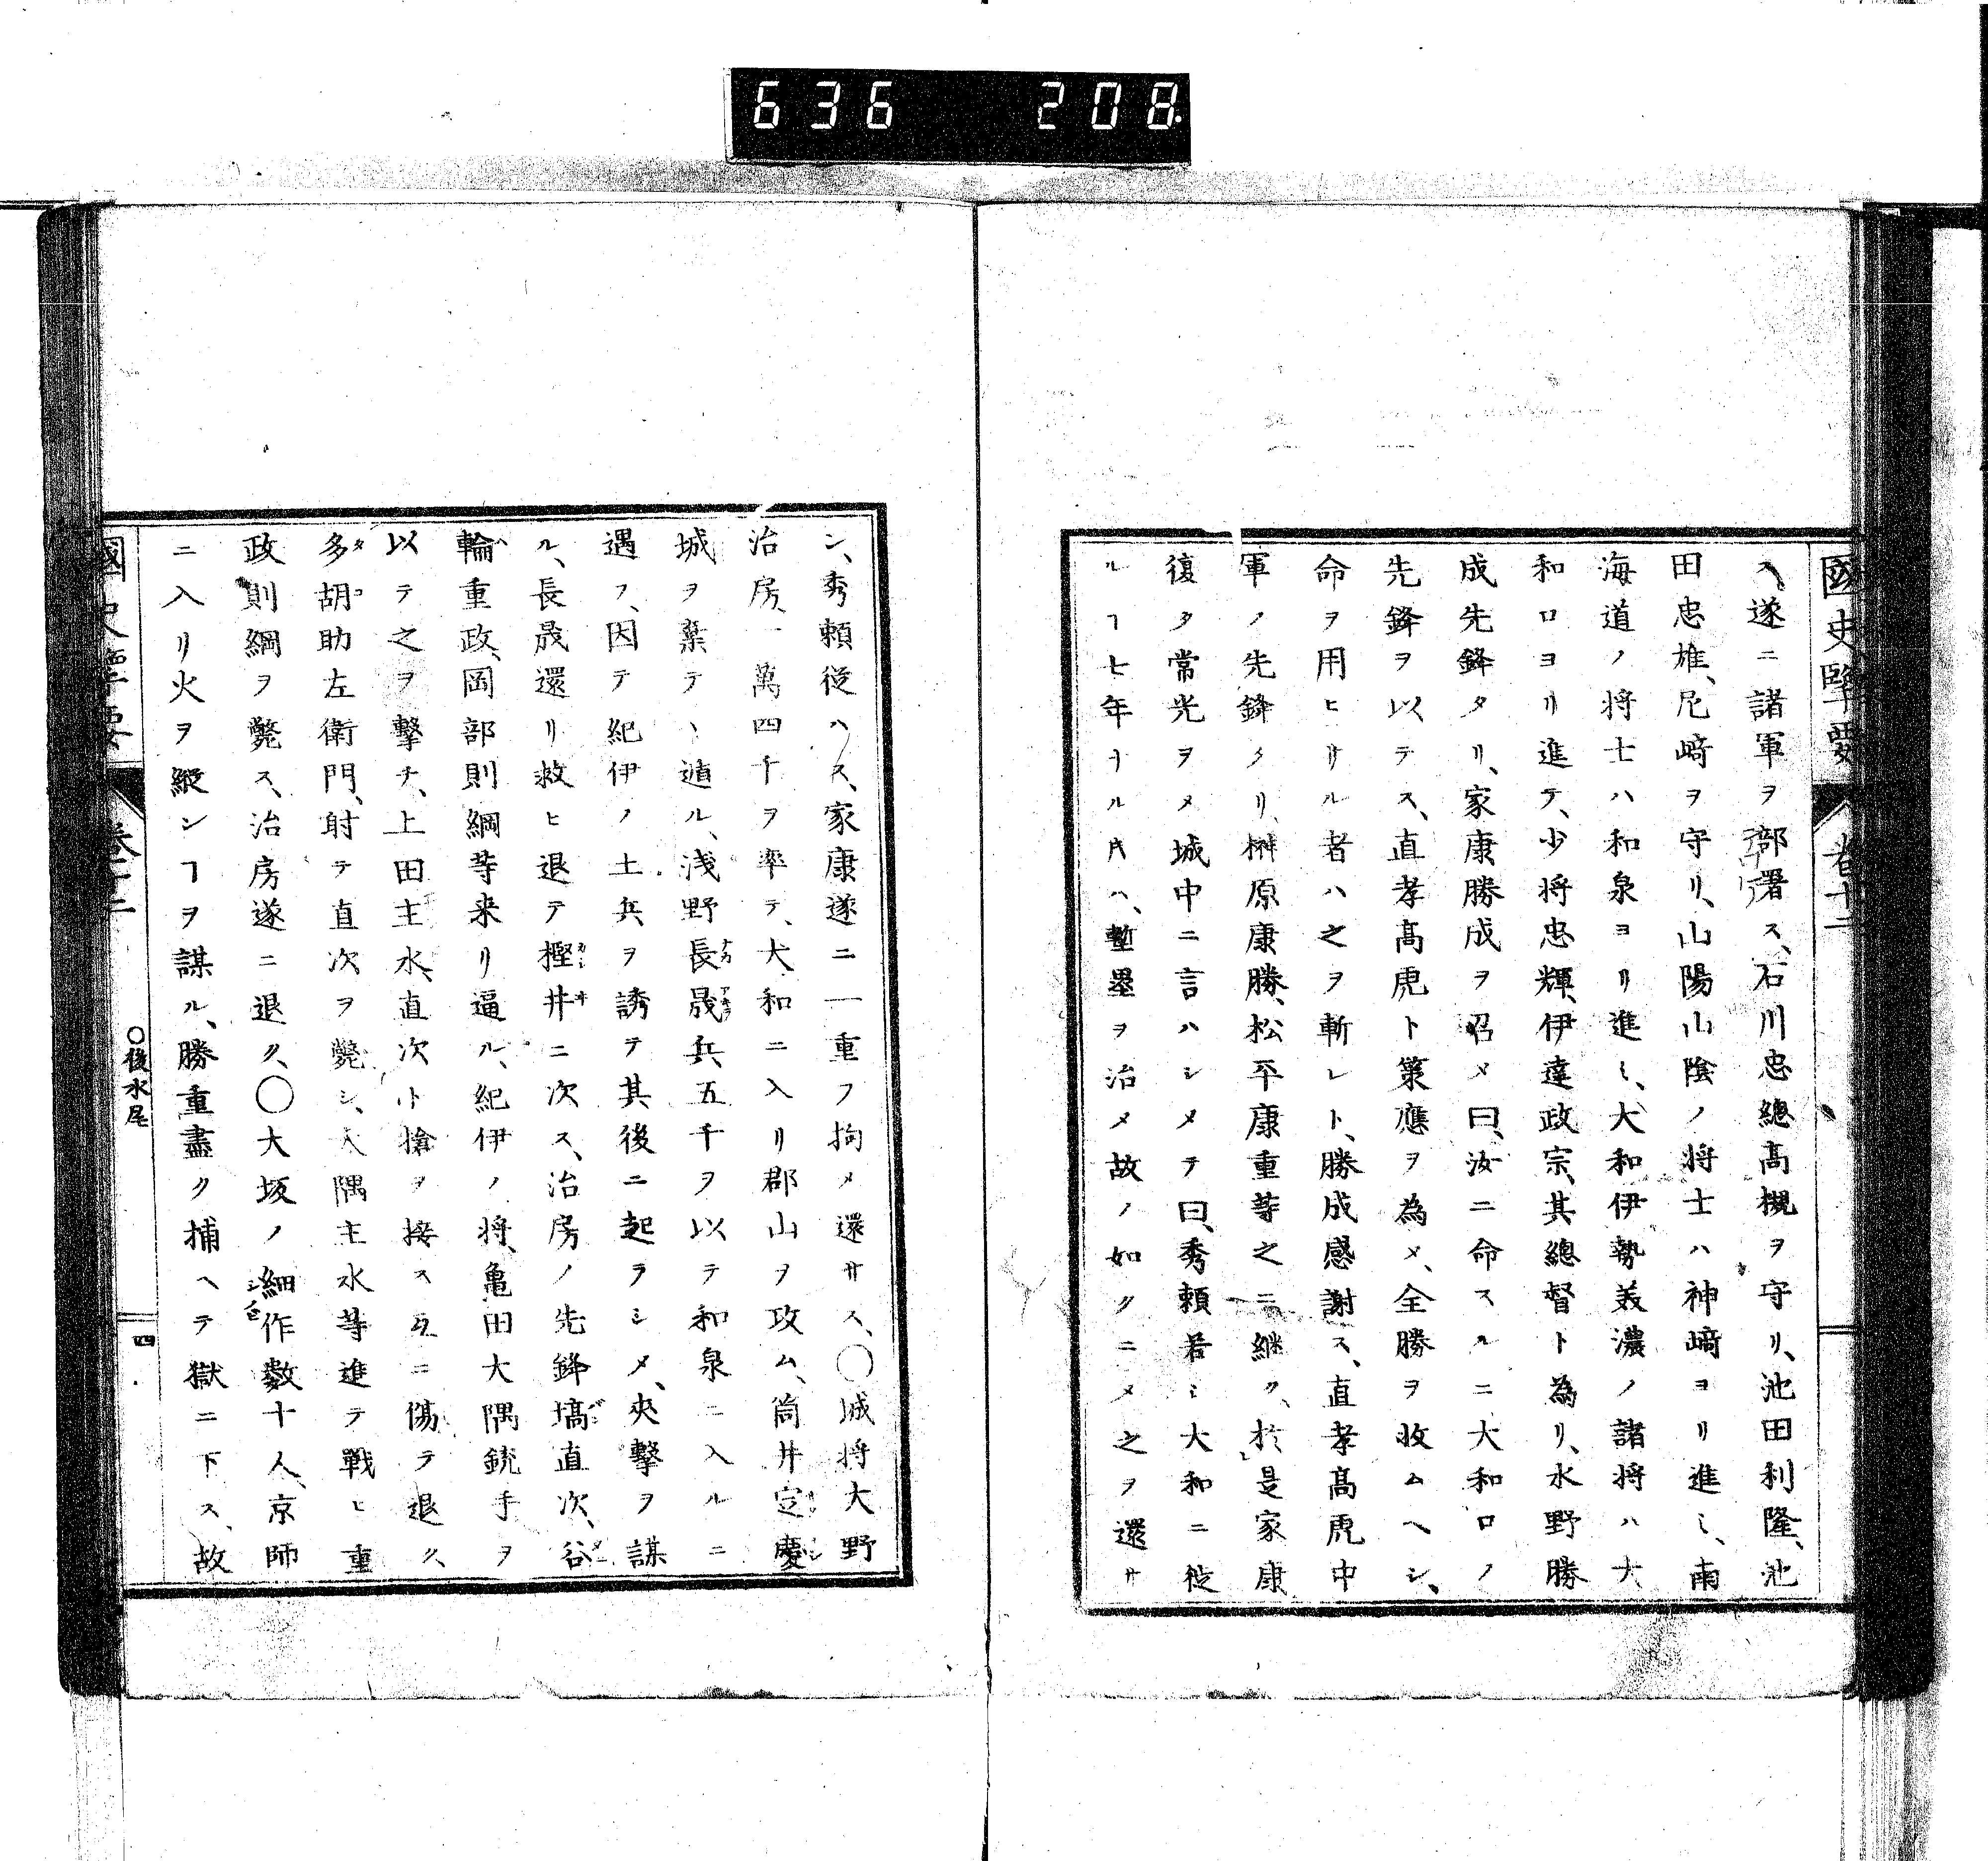 636 208
國史擥要 卷十二
ス、遂ニ諸軍ヲ部署ス、石川忠總髙槻ヲ守リ、池田利隆、池
田忠雄、尼﨑ヲ守リ、山陽山陰ノ将士ハ神﨑ヨリ進ミ、南
海道ノ将士ハ和泉ヨリ進ミ、大和伊勢美濃ノ諸将ハ大
和口ヨリ進テ、少将忠輝、伊達政宗、其總督ト為リ、水野勝
成先鋒タリ、家康勝成ヲ召メ曰、汝ニ命スルニ大和口ノ
先鋒ヲ以テス、直孝髙虎ト策應ヲ為メ、全勝ヲ收ムヘシ、
命ヲ用ヒサル者ハ之ヲ斬レト、勝成感謝ス、直孝髙虎中
軍ノ先鋒タリ、榊原康勝、松平康重等之ニ継ク、於是家康
復タ常光ヲメ城中ニ言ハシメテ曰、秀頼若シ大和ニ徙
ルヿ七年ナル𪜈ハ、塹壘ヲ治メ故ノ如クニメ之ヲ還サ
シ、秀頼從ハス、家康遂ニ一重ヲ拘メ還サス、〇城将大野
治房、一萬四千ヲ率テ、大和ニ入リ郡山ヲ攻ム、筒井定慶
城ヲ棄テヽ遁ル、浅野長晟兵五千ヲ以テ和泉ニ入ルニ
遇フ、因テ紀伊ノ土兵ヲ誘テ其後ニ起ラシメ、夾擊ヲ謀
ル、長晟還リ救ヒ退テ樫井ニ次ス、治房ノ先鋒塙直次、谷
輪重政、岡部則綱等来リ逼ル、紀伊ノ将、亀田大隅銃手ヲ
以テ之ヲ擊チ、上田主水、直次ト搶ヲ接ス互ニ傷テ退ク、
多胡助左衛門、射テ直次ヲ斃シ、大隅主水等進テ戰ヒ重
政則綱ヲ斃ス、治房遂ニ退ク、〇大坂ノ細作數十人、京師
ニ入リ火ヲ縱ンヿヲ謀ル、勝重盡ク捕ヘテ獄ニ下ス、故
國史擥要 卷十二 〇後水尾 四